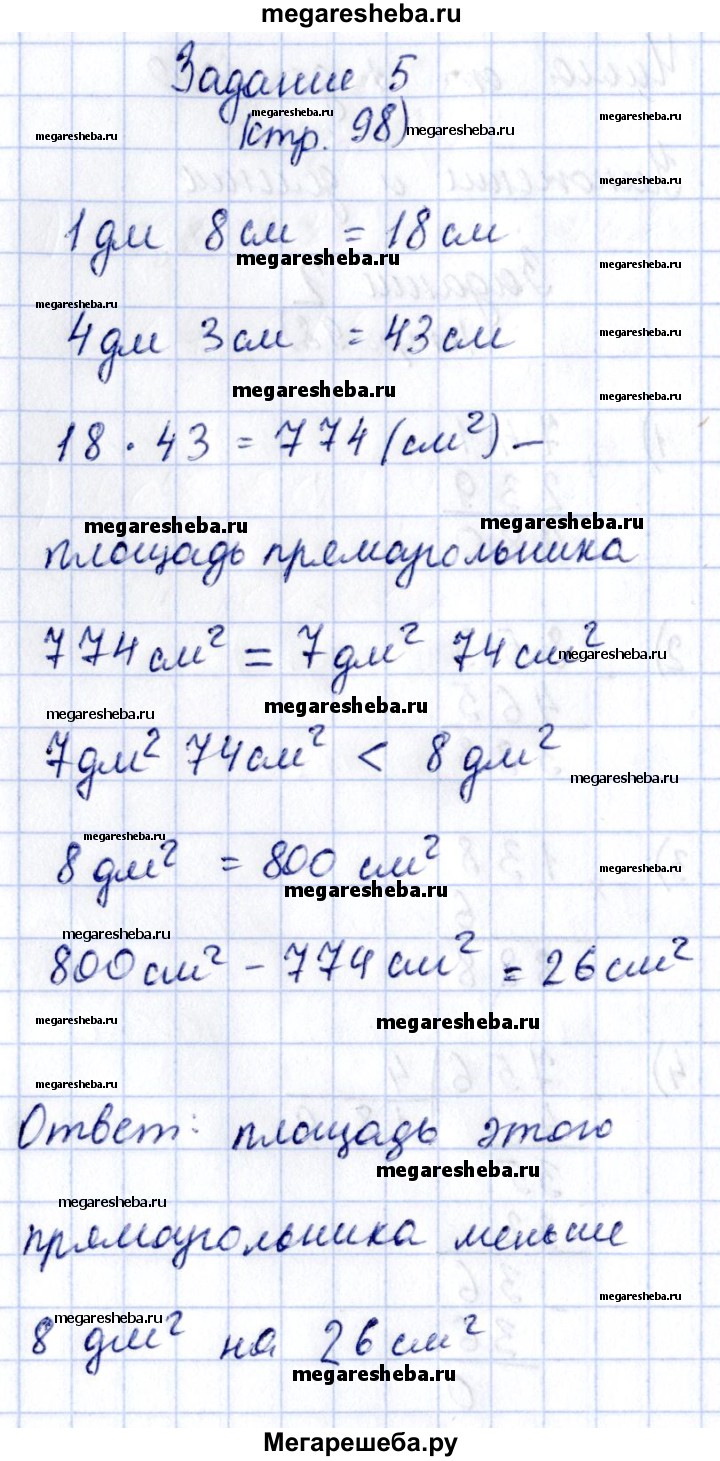 megaresheba.ru
Задание 5
megaresheba.ru
megaresheba.ru
(стр. 98)
megaresheba.ru
megaresheba.ru
1 дм 8 см = 18 см
megaresheba.ru
megaresheba.ru
megaresheba.ru
4 дм 3 см = 43 см
megaresheba.ru
megaresheba.ru
megaresheba.ru
18 · 43 = 774 (см²) –
megaresheba.ru
megaresheba.ru
площадь прямоугольника
774 см² = 7 дм² 74 см²
megaresheba.ru
megaresheba.ru
megaresheba.ru
7 дм² 74 см² < 8 дм²
megaresheba.ru
megaresheba.ru
8 дм² = 800 см²
megaresheba.ru
megaresheba.ru
megaresheba.ru
800 см² – 774 см² = 26 см²
megaresheba.ru
megaresheba.ru
megaresheba.ru
Ответ: площадь этого
megaresheba.ru
megaresheba.ru
прямоугольника меньше
megaresheba.ru
megaresheba.ru
8 дм² на 26 см²
megaresheba.ru
Мегарешеба.ру